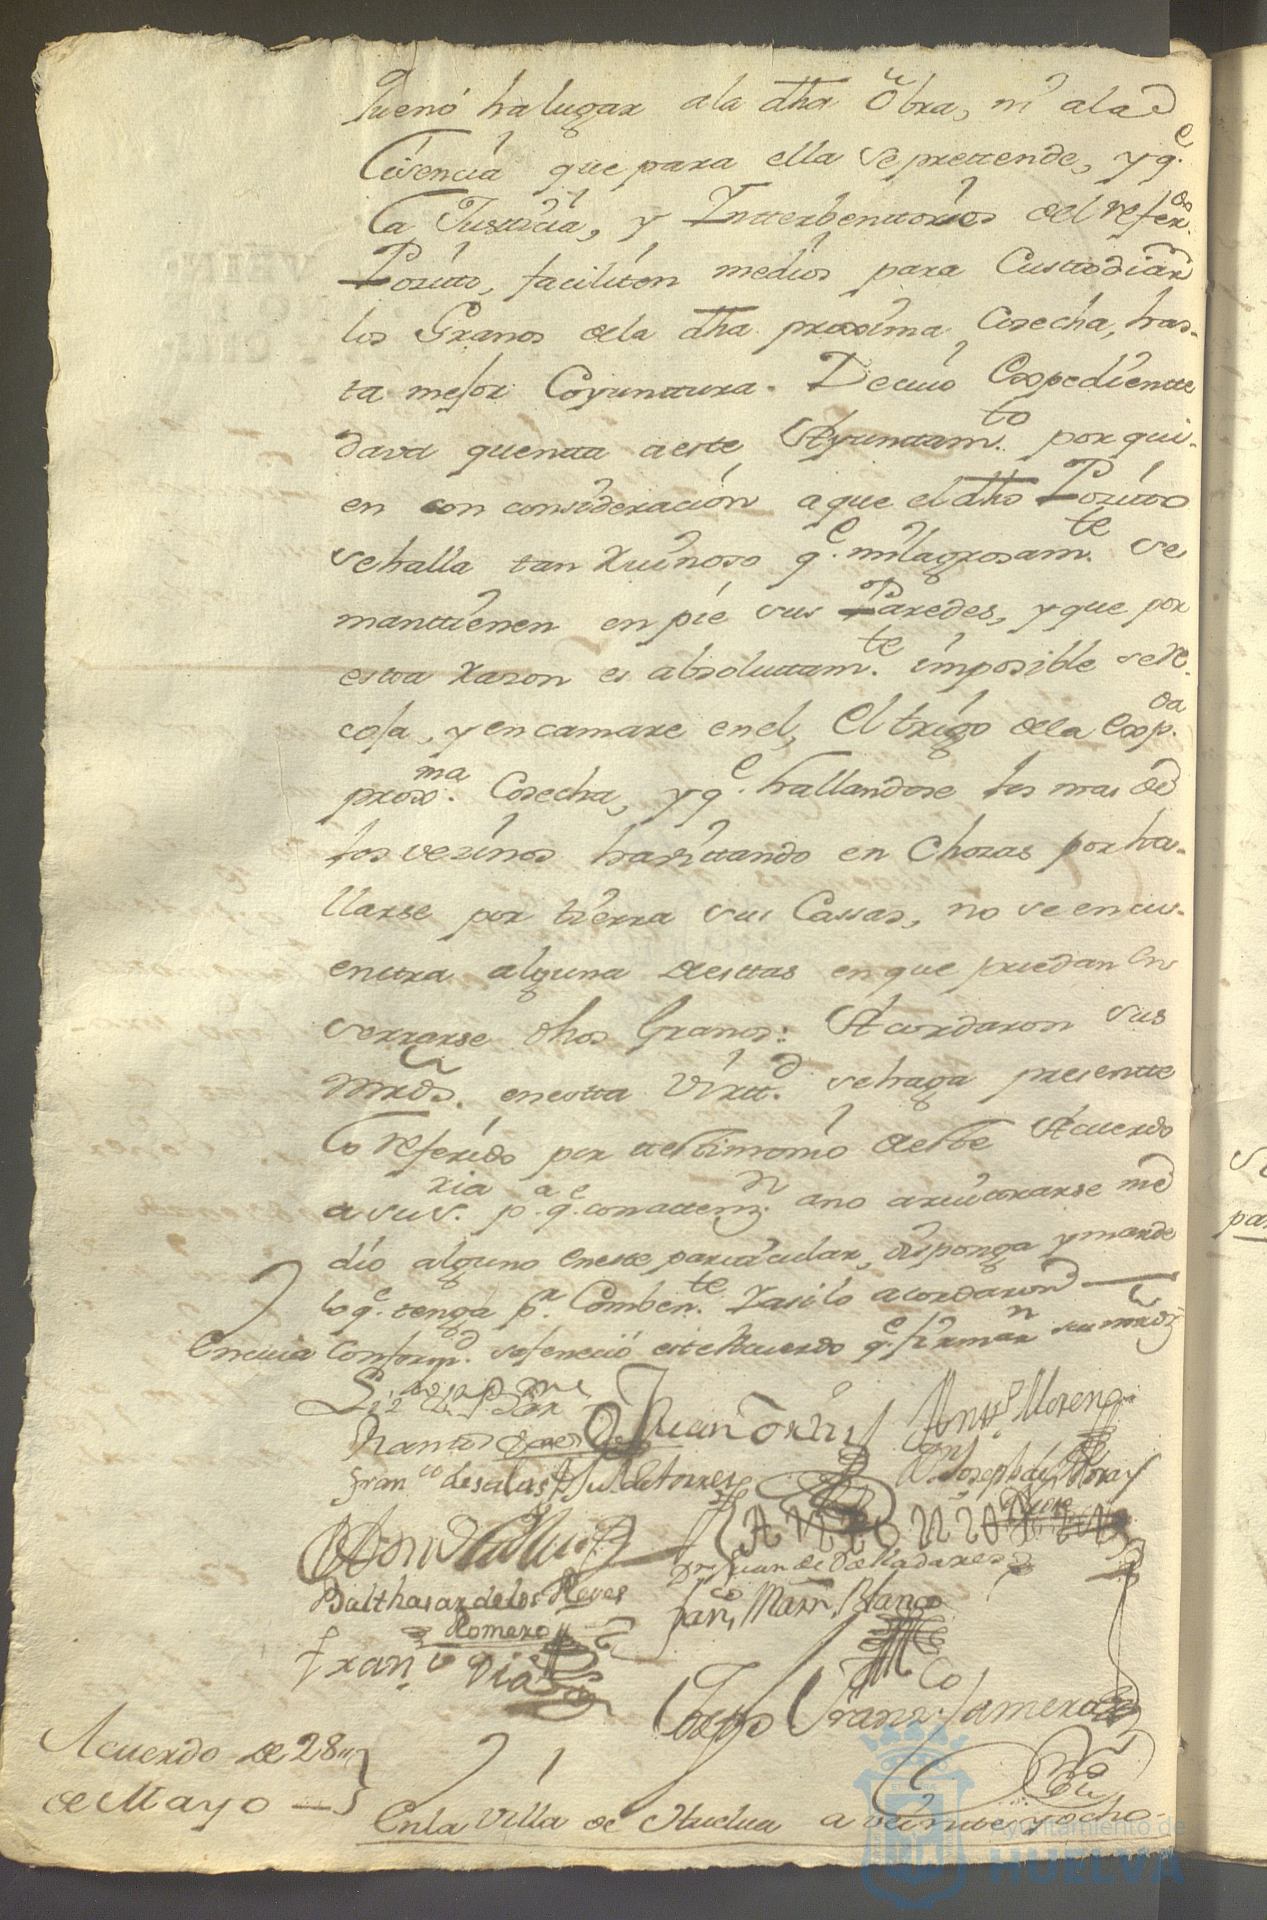 Que no ha lugar a la dha obra, ni a la
Lisencia que para ella se prettende, y q.e
la Justicia, y Intterbenttores del refer.do
Posito, faciliten medios para Custtodiar
los Granos de la dha proxima Cosecha, has-
ta mejor Coyunttura. De cuio Expediente
dava quentta a este Ayunttam.to por qui-
en con consideracion a que el dho Positto
se halla tan Ruinoso q.e milagrosam.te se
manttienen en pie sus Paredes, y que por
esta razon es absoluttam.te imposible se re-
coja, y encamare en el, el trigo de la Exp.da
prox.ma Cosecha, y q.e hallandose los mas de
los vezinos havittando en Chozas por ha-
llarse por tierra sus Cassas, no se encu-
entra alguna de esttas en que puedan en
serrarse dhos Granos: Acordaron sus
mrds. en esta virtt.d se haga presentte
lo referido por testimonio de este Acuerdo
a su S.ria p.a q.e con atten.n a no arvitrarse me
dio alguno en este particular, disponga y mande
lo q.e tenga p.r Comben.te Y asi lo acordaron
En cuia Conform.d se fenecio este Acuerdo q.e firman sus mrds
Juan Torris Ant.o Moreno
Ramos
Fran.co de salas
D.n Joseph de Mora y
D.n Juan de Valladares
Balthasar de los Reyes
Romero
Fran.co Mãrn Blanco
Fran.co Dias
Diego Franz.co Zamorano
Acuerdo de 28
de Mayo
En la Villa de Huelva a veinte y ocho
Ayuntamiento de
HUELVA